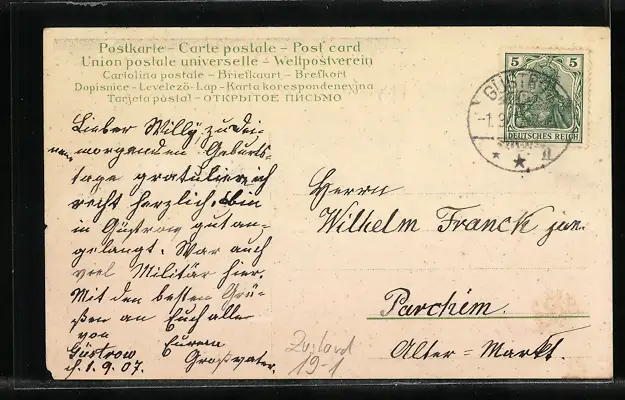 Postkarte – Carte postale – Post card
Union postale universelle – Weltpostverein
Cartolina postale – Briefkaart – Brefkort
Dopisnice – Levelező-Lap – Karta korespondencyjna
Tarjeta postal – ОТКРЫТОЕ ПИСЬМО
5 5
DEUTSCHES REICH
GÜSTROW
-1.9
Lieber Willy, zu Dei-
nem morgenden Geburts-
tage gratuliere ich
recht herzlich. Bin
in Güstrow gut an-
gelangt. War auch
viel Militär hier.
Mit den besten Grü-
ßen an Euch alle
von Eurem
Güstrow Großvater.
d. 1.9.07.
Herrn
Wilhelm Franck jun.
Parchim.
Alter-Markt.
19-1